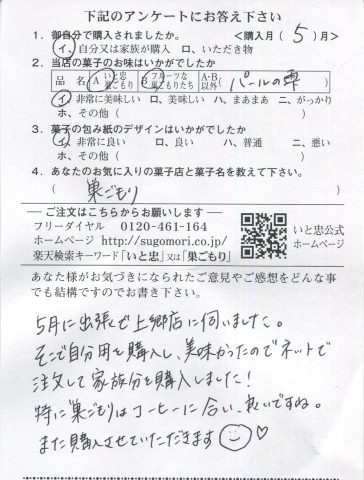 下記のアンケートにお答え下さい
1. 御自分で購入されましたか。 <購入月( 5 )月>
イ、自分又は家族が購入 ロ、いただき物
2. 当店の菓子のお味はいかがでしたか
品 名 A いと忠巣ごもり B フルーツな巣ごもりたち A・B以外 ( パールの雫 )
イ、非常に美味しい ロ、美味しい ハ、まあまあ ニ、がっかり
ホ、その他( )
3. 菓子の包み紙のデザインはいかがでしたか
イ、非常に良い ロ、良い ハ、普通 ニ、悪い
ホ、その他( )
4. あなたのお気に入りの菓子店と菓子名を教えて下さい。
( 巣ごもり )
―ご注文はこちらからお願いします―
フリーダイヤル 0120-461-164
ホームページ http://sugomori.co.jp/
楽天検索キーワード「いと忠」又は「巣ごもり」
いと忠公式
ホームページ
あなた様がお気づきになられたご意見やご感想をどんな事
でも結構ですのでお書き下さい。
5月に出張で上郷店に伺いました。
そこで自分用を購入し、美味かったのでネットで
注文して家族分を購入しました!
特に巣ごもりはコーヒーに合い、良いですね。
また購入させていただきます